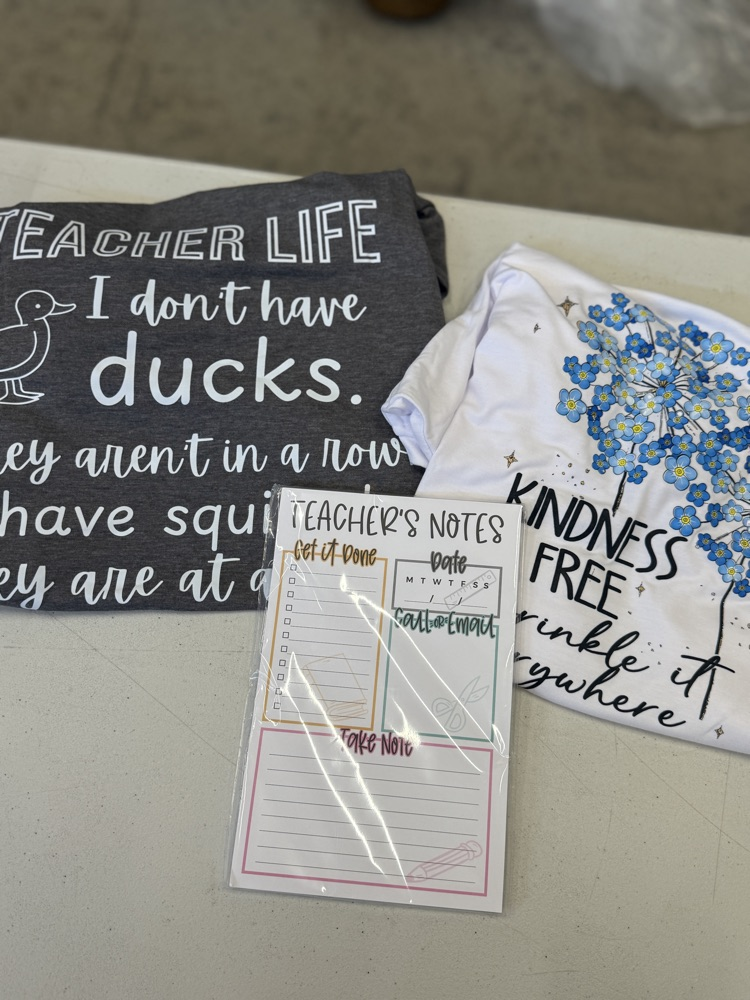 TEACHER LIFE
I don't have
ducks.
ey aren't in a row
have squi
ey are at a
TEACHER'S NOTES
Get it Done
Date
M T W T F S S
/ /
Call or Email
Take Note
KINDNESS
FREE
rinkle it
rywhere